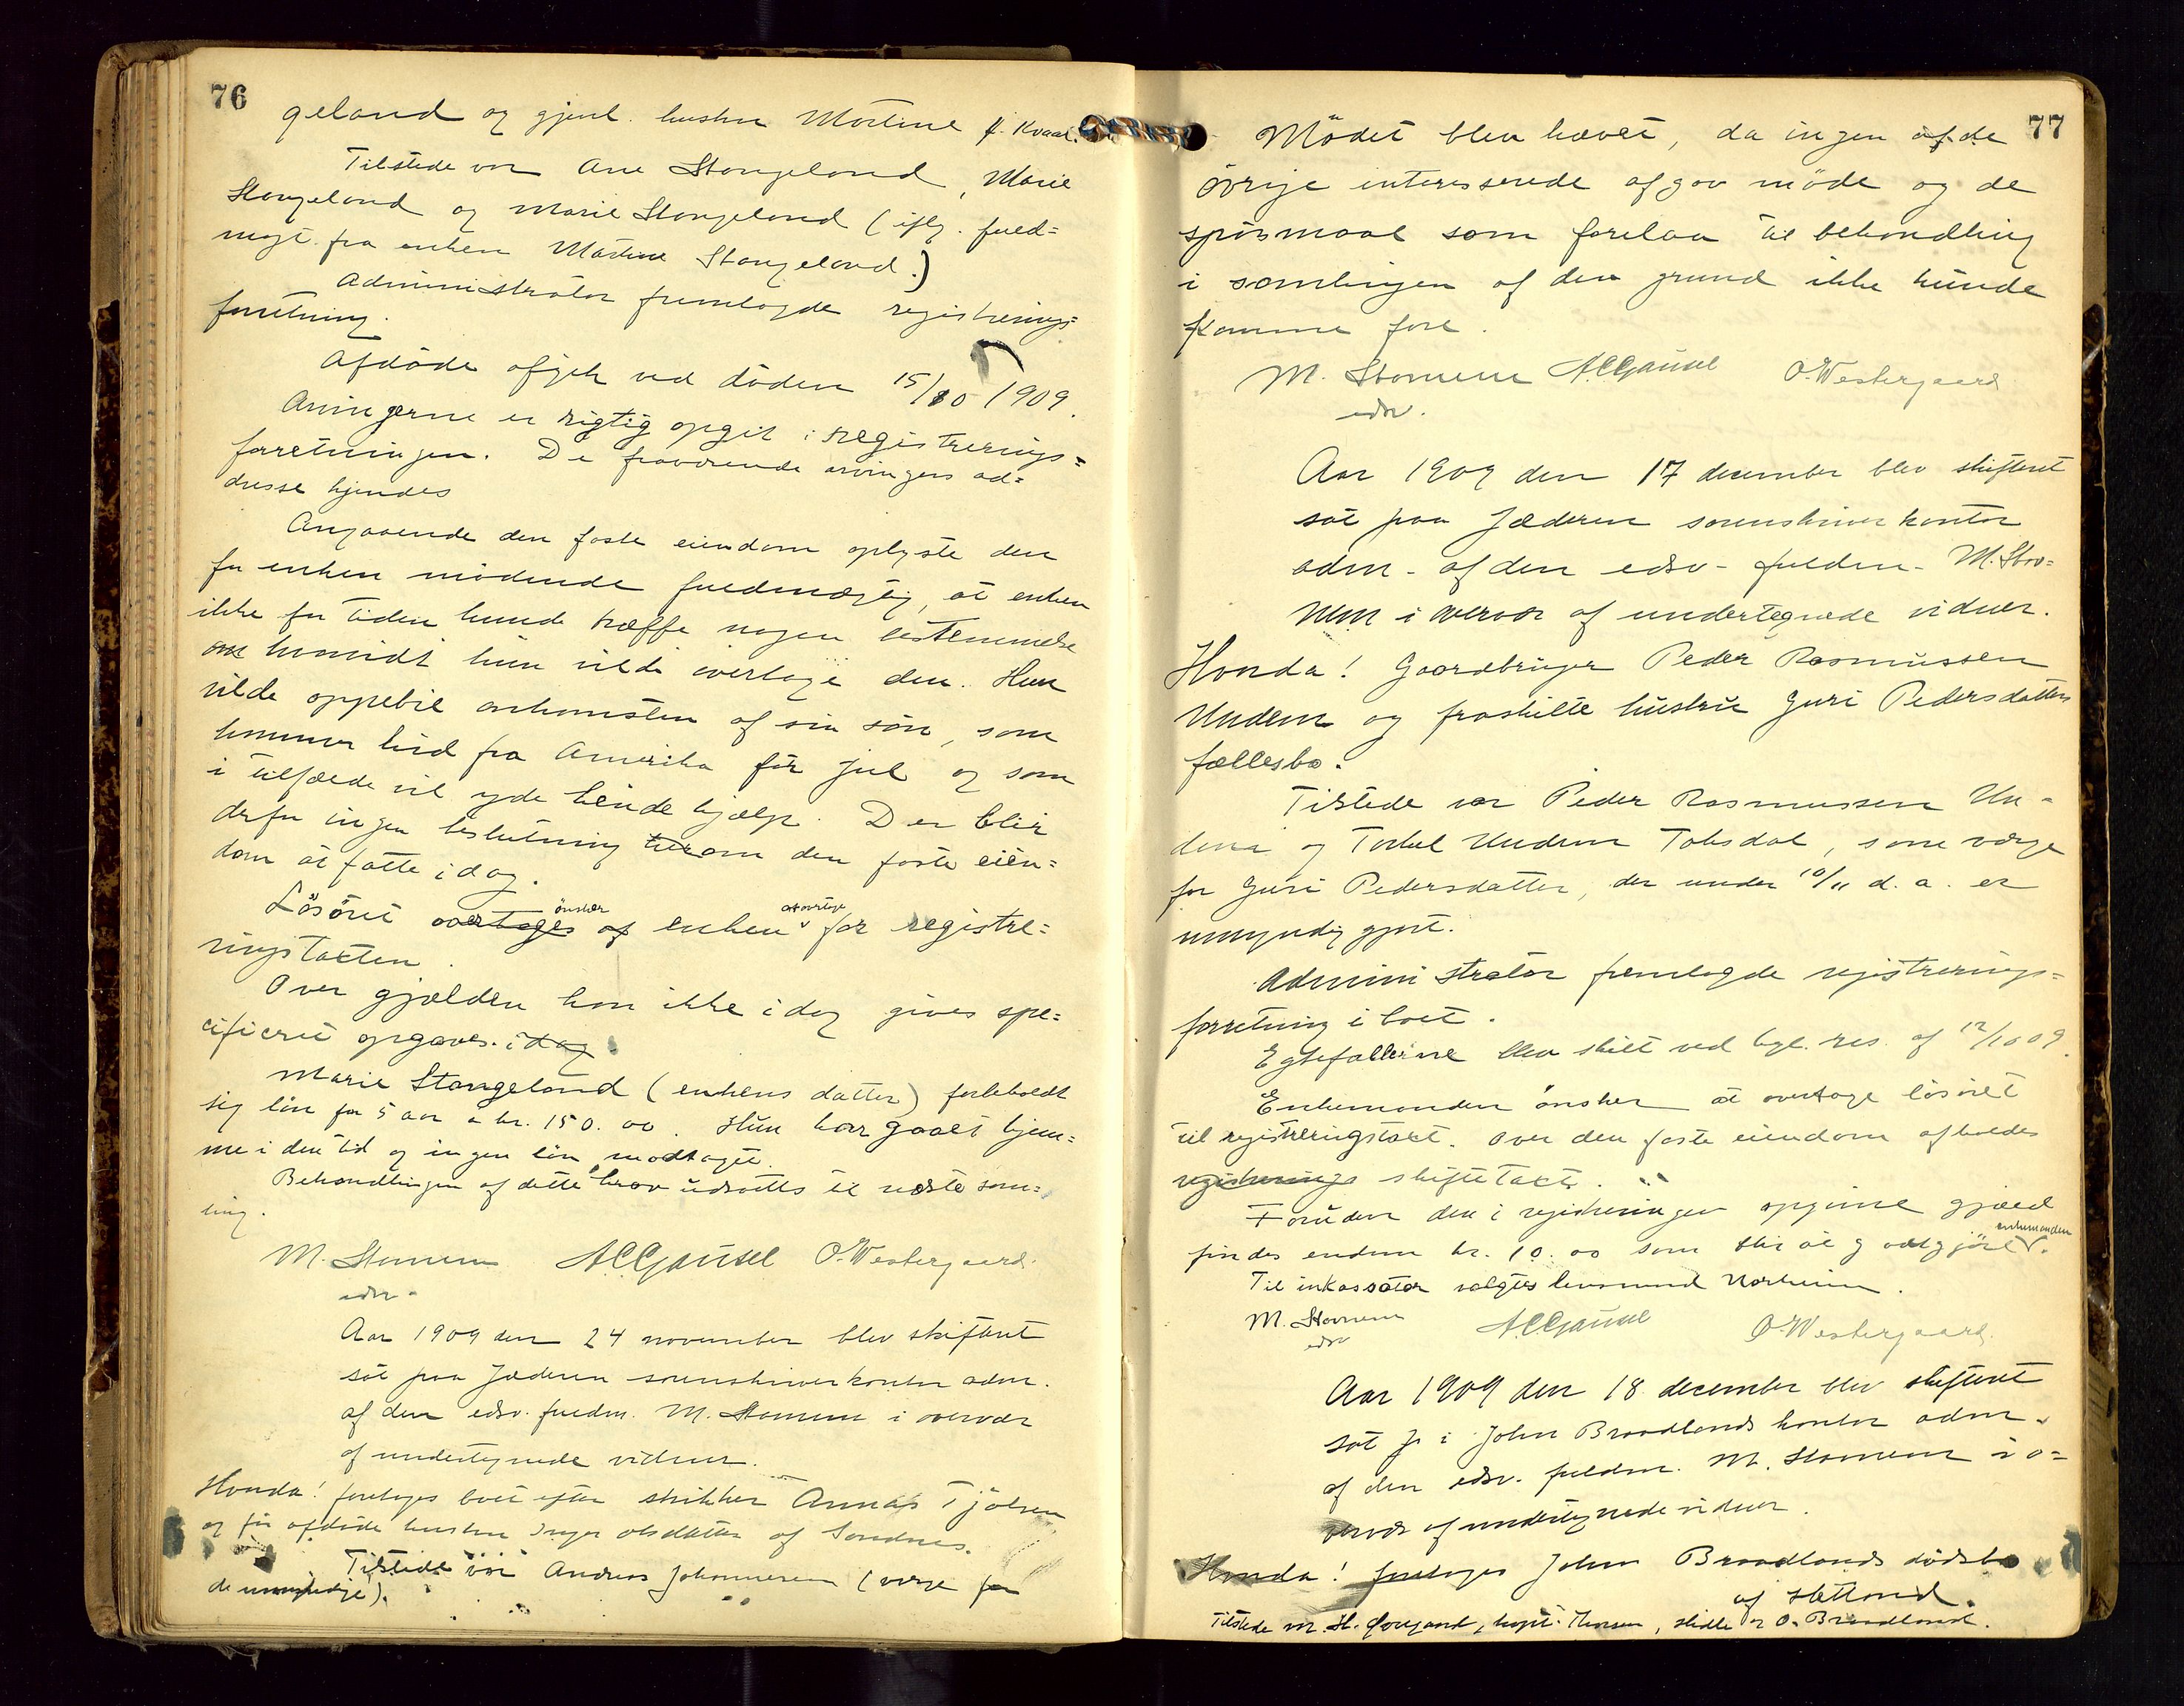 76
geland og gjenl. hustru Martine f. Kvaal.
Tilstede var Ane Stangeland, Marie
Stangeland og Marie Stangeland (iflg. fuld=
magt fra enken Martine Stangeland.)
Administrator fremlagde registrerings=
forretning.
Afdöde afgik ved döden 15/10 1909.
Arvingerne er rigtig opgit i registrerings=
forretningen. De fraværende arvingers ad=
dresse kjendes
Angaaende den faste eiendom oplyste den
for enken mödende fuldmægtig, at enken
ikke for tiden kunde træffe nogen bestemmelse
om hvorvidt hun vilde overtage den. Hun
vilde oppebie ankomsten af sin sön, som
kommer hid fra Amerika för jul og som
i tilfælde vil yde hende hjælp. Der blir
derfor ingen beslutning om den faste eien=
dom at fatte idag.
Lösöret overtages af önsker enken overtage for registre=
ringstakten.
Over gjælden kan ikke idag gives spe=
cificeret opgave. idag
Marie Stangeland (enkens datter) forbeholdt
sig lön for 5 aar a kr. 150.00. Hun har gaaet hjem=
me i den tid og ingen lön modtaget.
Behandlingen af dette krav udsættes til næste sam=
ling.
M. Stornem A C Gausel O. Westergaard.
edsv.
Aar 1909 den 24 november blev skifteret
sat paa Jæderen sorenskriverkontor adm.
af den edsv. fuldm. M. Stornem i overvær
af undertegnede vidner.
Hvorda! foretages boet efter snikker Annas Tjölsen
og før afdöde hustru Inger Olsdatter af Sandnes.
Tilstede var Andreas Johannesen (verge for
de umyndige).
77
Mödet blev hævet, da ingen af de
övrige interesserede afgav möde og de
spörsmaal som forelaa til behandling
i samlingen af den grund ikke kunde
komme fore.
M. Stornem A C Gausel O. Westergaard
edsv.
Aar 1909 den 17 december blev skifteret
sat paa Jæderen sorenskriverkontor
adm. af den edsv. fuldm. M. Stor=
nem i overvær af undertegnede vidner.
Hvorda! Gaardbruger Peder Rasmussen
Undem og fraskilte hustru Guri Pedersdatters
fællesbo.
Tilstede var Peder Rasmussen Un=
dem og Torkel Undem Taksdal, som verge
for Guri Pedersdatter, der under 10/11 d. a. er
umyndiggjort.
Administrator fremlagde registrerings=
forretning i boet.
Egtefællerne blev skilt ved kgl. res. af 12/10 09.
Enkemanden önsker at overtage lösöret
til registreringstakt. Over den faste eiendom afholdes
registrerings skiftetakt.
Foruden den i registreringen opgivne gjæld
findes endnu kr. 10.00 som blir at godtgjöre enkemanden.
Til inkassator valgtes lensmand Norheim.
M. Stornem A C Gausel O. Westergaard.
edsv
Aar 1909 den 18 december blev skifteret
sat i John Braadlands kontor adm.
af den edsv. fuldm. M. Stornem i o=
vervær af undertegnede vidner.
Hvorda! foretages John Braadlands dödsbo
af Hetland.
Tilstede var H. , kapt. Thorsen, og O. Braadland.